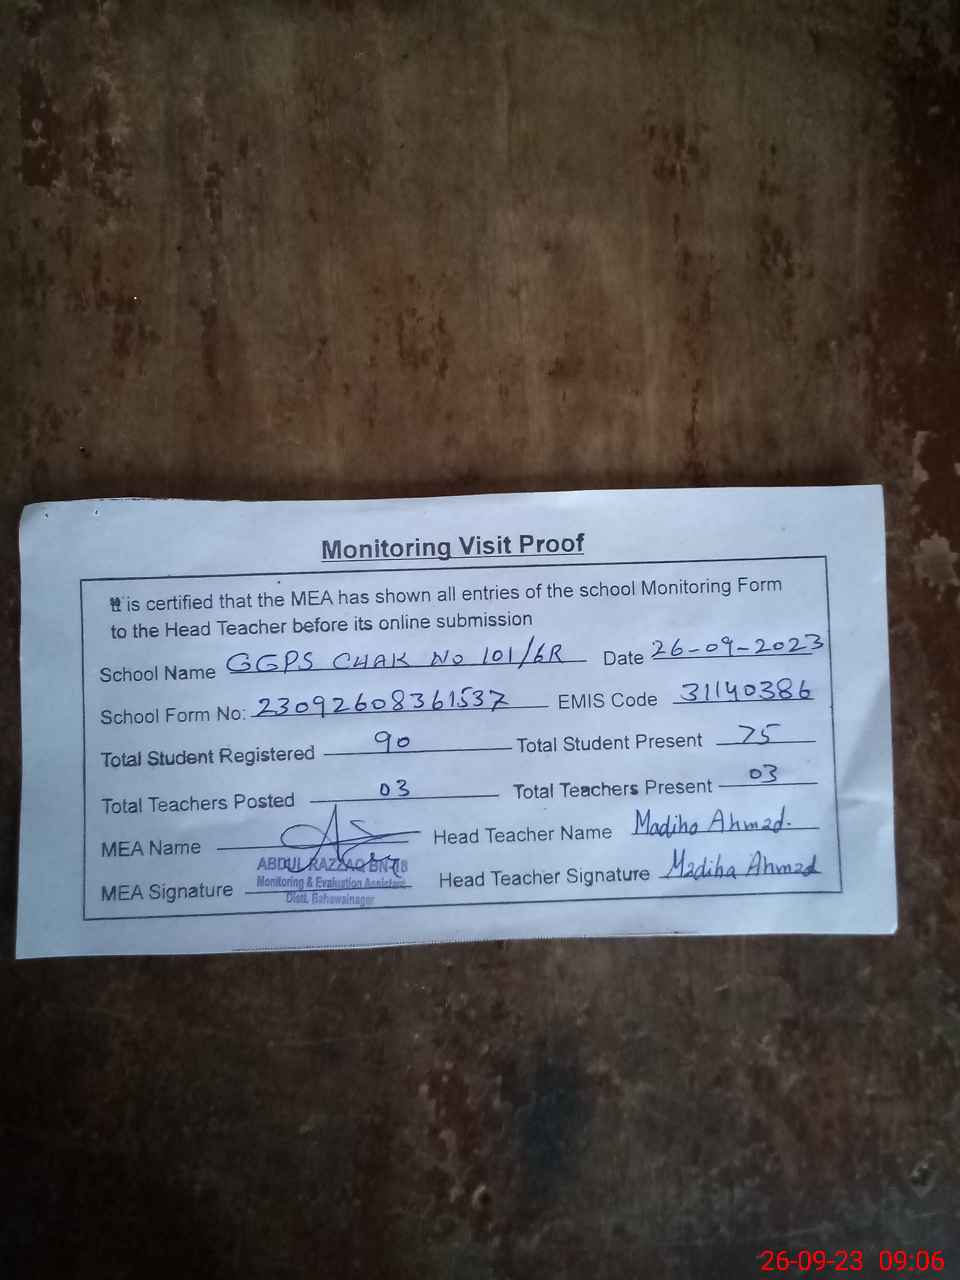 Monitoring Visit Proof
It is certified that the MEA has shown all entries of the school Monitoring Form
to the Head Teacher before its online submission
School Name GGPS CHAK No 101/6R Date 26-09-2023
School Form No: 23092608361537 EMIS Code 31140386
Total Student Registered 90 Total Student Present 75
Total Teachers Posted 03 Total Teachers Present 03
MEA Name Head Teacher Name Madiha Ahmad.
ABDUL RAZZAQ BN-18
MEA Signature Monitoring & Evaluation Assistant Head Teacher Signature Madiha Ahmad
Distt. Bahawalnagar
26-09-23 09:06